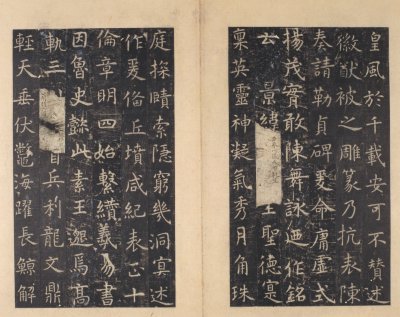 皇風於千載安可不贊述
徽猷被之雕篆乃抗表陳
奏請勒貞碑爰命庸虛式
揚茂實敢陳舞詠迺作銘
云景緯聖德寔
稟英靈神凝氣秀月角珠
庭探賾索隱窮幾洞冥述
作爰俻丘墳咸紀表正十
倫章明四始繫纘羲易書
因魯史懿此素王邈焉高
軌三兵利龍文鼎
輕天垂伏鱉海躍長鯨解